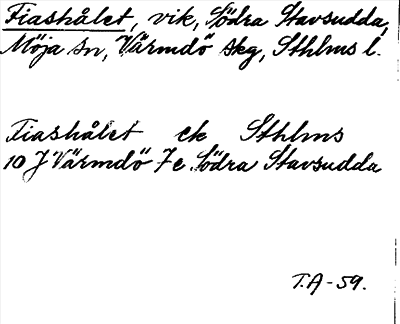 Fiashålet, vik, Södra Stavsudda,
Möja sn, Värmdö skg, Sthlms l.
Fiashålet ek Sthlms
10 J Värmdö 7 e Södra Stavsudda
T.A-59.